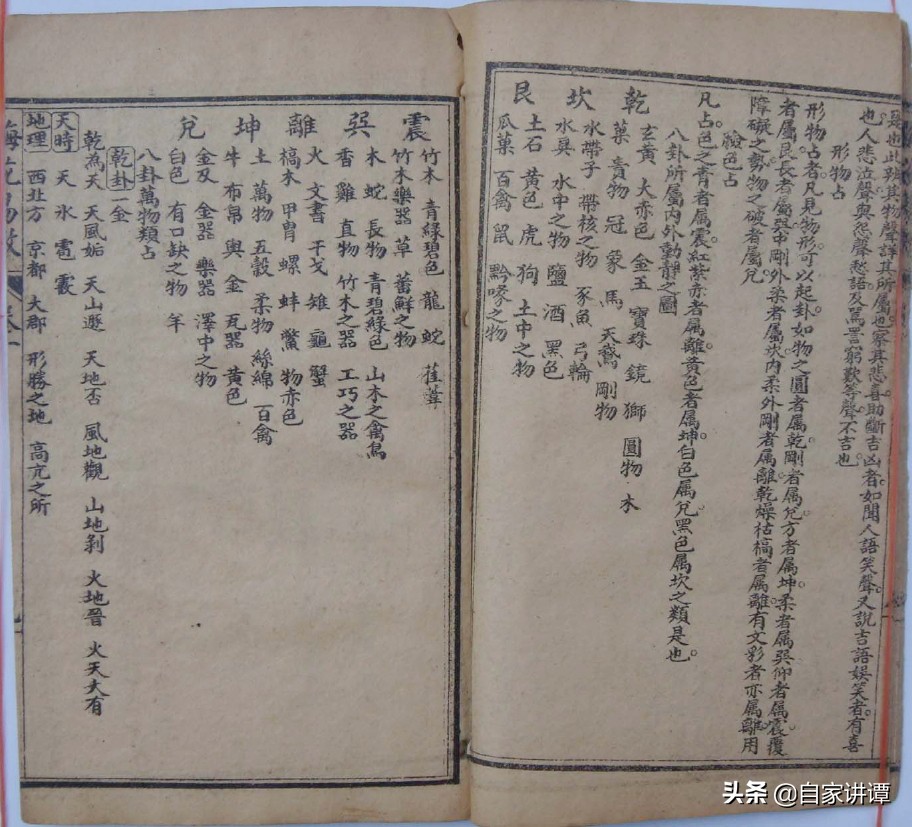 是也此類其物聲詳其所屬也察其悲喜助斷吉凶者如聞人語笑聲又說吉語娛笑者有喜
也人悲泣聲與怨聲愁語及罵詈窮歎等聲不吉也
形物占
形物占者凡見物形可以起卦如物之圓者属乾剛者属兌方者属坤柔者属巽仰者属震覆
者属艮長者属巽中剛外柔者属坎内柔外剛者属離乾燥枯槁者属離有文彩者亦属離用
障礙之勢物之破者属兌
驗色占
凡占色之青者属震紅紫赤者属離黃色者属坤白色属兌黑色属坎之類是也
八卦所属内外動靜之圖
乾 玄黃 大赤色 金玉 寶珠 鏡 獅 圓物 木
菓 貴物 冠 蒙 馬 天鵞 剛物
坎 水帶子 帶核之物 豕魚 弓輪
水具 水中之物 鹽 酒 黑色
艮 土石 黃色 虎 狗 土中之物
瓜菓 百禽 鼠 黔喙之物
震 竹木 青綠碧色 龍 蛇 萑葦
竹木樂器 草 蕃鮮之物
巽 木 蛇 長物 青碧綠色 山木之禽鳥
香 雞 直物 竹木之器 工巧之器
離 火 文書 干戈 雉 龜 蟹
槁木 甲冑 螺 蚌 鱉 物赤色
坤 土 萬物 五穀 柔物 絲綿 百禽
牛 布帛 輿 金 瓦器 黃色
兌 金刃 金器 樂器 澤中之物
白色 有口缺之物 羊
八卦萬物類占
乾卦 一金
乾為天 天風姤 天山遯 天地否 風地觀 山地剝 火地晉 火天大有
天時 天 氷 雹 霰
地理 西北方 京都 大郡 形勝之地 高亢之所
头条 @自家讲谭